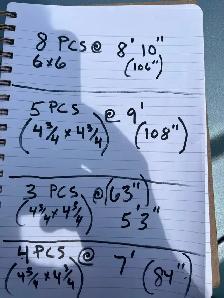 8 PCS @ 8' 10"
6x6 (106")
5 PCS @ 9'
(4 3/4 x 4 3/4) (108")
3 PCS @ (63")
(4 3/4 x 4 3/4) 5'3"
4 PCS @ 7' (84")
(4 3/4 x 4 3/4)